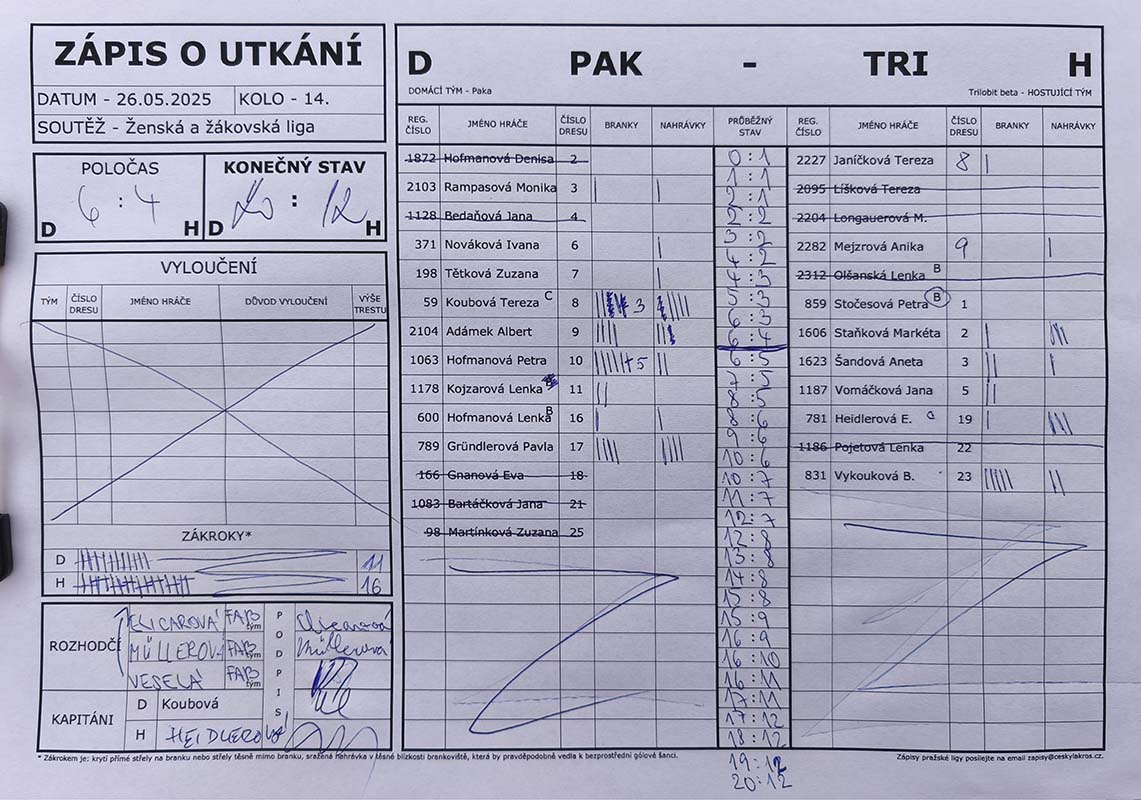 ZÁPIS O UTKÁNÍ
DATUM - 26.05.2025 KOLO - 14.
SOUTĚŽ - Ženská a žákovská liga
POLOČAS KONEČNÝ STAV
6 : 4 20 : 12
D H D H
VYLOUČENÍ
TÝM ČÍSLO DRESU JMÉNO HRÁČE DŮVOD VYLOUČENÍ VÝŠE TRESTU
ZÁKROKY*
D 11
H 16
ROZHODČÍ
ELICAROVÁ FAB tým
MÜLLEROVÁ FAB tým
VESELÁ FAB tým
PODPIS
Müllerová
KAPITÁNI
D Koubová
H HEIDLEROVÁ
D PAK - TRI H
DOMÁCÍ TÝM - Paka Trilobit beta - HOSTUJÍCÍ TÝM
REG. ČÍSLO JMÉNO HRÁČE ČÍSLO DRESU BRANKY NAHRÁVKY PRŮBĚŽNÝ STAV REG. ČÍSLO JMÉNO HRÁČE ČÍSLO DRESU BRANKY NAHRÁVKY
1872 Hofmanová Denisa 2
2103 Rampasová Monika 3 | |
1128 Bedaňová Jana 4
371 Nováková Ivana 6 |
198 Tětková Zuzana 7 |
59 Koubová Tereza C 8 3
2104 Adámek Albert 9 ||||
1063 Hofmanová Petra 10 |||||+5 ||
1178 Kojzarová Lenka 11 ||
600 Hofmanová Lenka B 16 | |
789 Gründlerová Pavla 17 |||| |||||
166 Gnanová Eva 18
1083 Bartáčková Jana 21
98 Martínková Zuzana 25
0:1
1:1
2:1
2:2
3:2
4:2
4:3
5:3
6:3
6:4
6:5
7:5
8:5
8:6
9:6
10:6
10:7
11:7
12:7
12:8
13:8
14:8
15:8
15:9
16:9
16:10
16:11
17:11
17:12
18:12
19:12
20:12
2227 Janíčková Tereza 8 |
2095 Líšková Tereza
2204 Longauerová M.
2282 Mejzrová Anika 9 |
2312 Olšanská Lenka B
859 Stočesová Petra B 1
1606 Staňková Markéta 2 | |||
1623 Šandová Aneta 3 || |
1187 Vomáčková Jana 5 ||
781 Heidlerová E. C 19 | ||||
1186 Pojetová Lenka 22
831 Vykouková B. 23 ||||| ||
* Zákrokem je: krytí přímé střely na branku nebo střely těsně mimo branku, sražená nahrávka v těsné blízkosti brankoviště, která by pravděpodobně vedla k bezprostřední gólové šanci.
Zápisy pražské ligy posílejte na email zapisy@ceskylakros.cz.